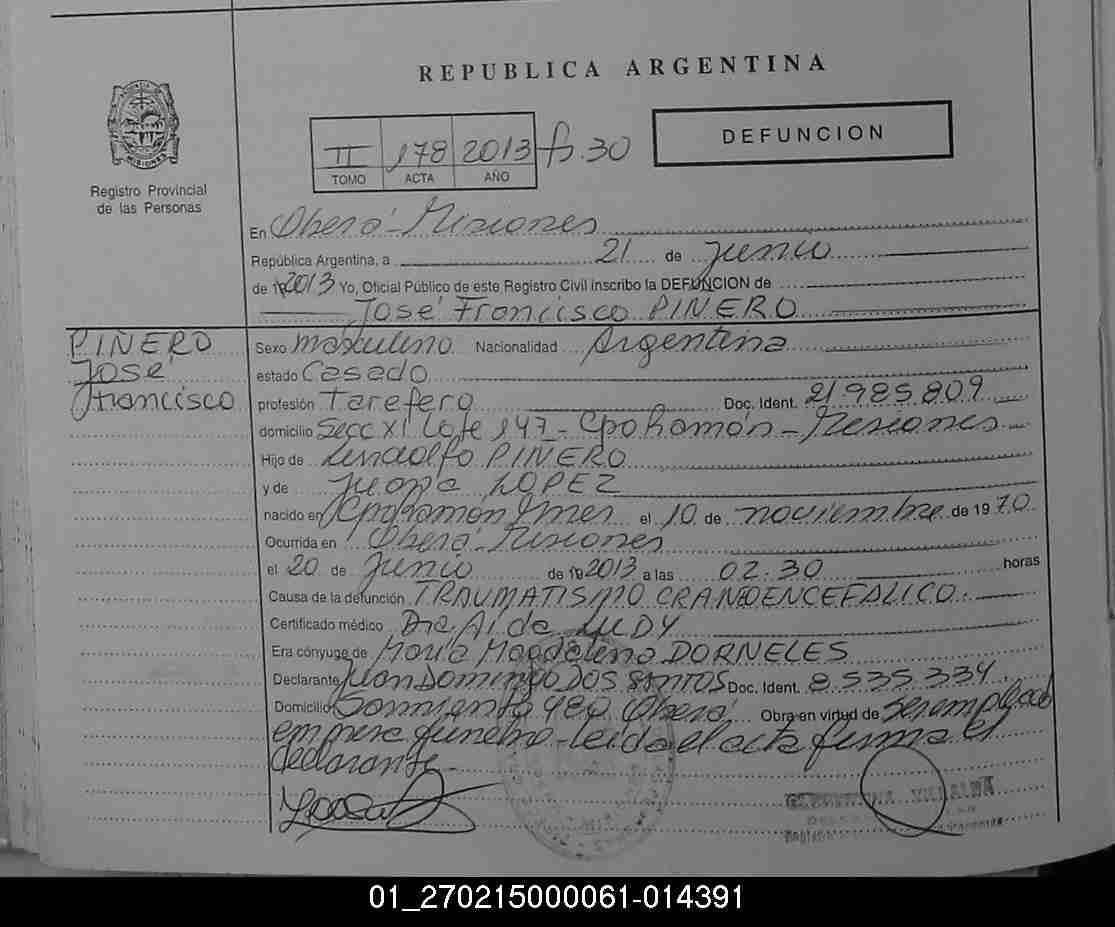 REPUBLICA ARGENTINA
II 178 2013 fº.30
TOMO ACTA AÑO
DEFUNCION
MISIONES
Registro Provincial
de las Personas
En Oberá-Misiones
República Argentina, a 21 de junio
de 2013 Yo, Oficial Público de este Registro Civil inscribo la DEFUNCION de
José Francisco PINERO
PINERO
José
Francisco
Sexo masculino Nacionalidad Argentina
estado Casado
profesión Tarefero Doc. Ident. 21.985.809
domicilio Secc XI Lote 147 - Cpo Ramón - Misiones
Hijo de Lindolfo PINERO
y de Juana LOPEZ
nacido en Cpo Ramón Mnes el 10 de noviembre de 1970
Ocurrida en Oberá-Misiones
el 20 de junio de 2013 a las 02:30 horas
Causa de la defunción TRAUMATISMO CRANEOENCEFALICO.
Certificado médico Dra. Aida
Era cónyuge de María Magdalena DORNELES
Declarante Juan Domingo DOS SANTOS Doc. Ident. 8.535.334
Domicilio Sarmiento Oberá Obra en virtud de ser empleado
empresa fúnebre - leída el acta firma el
declarante
01_270215000061-014391